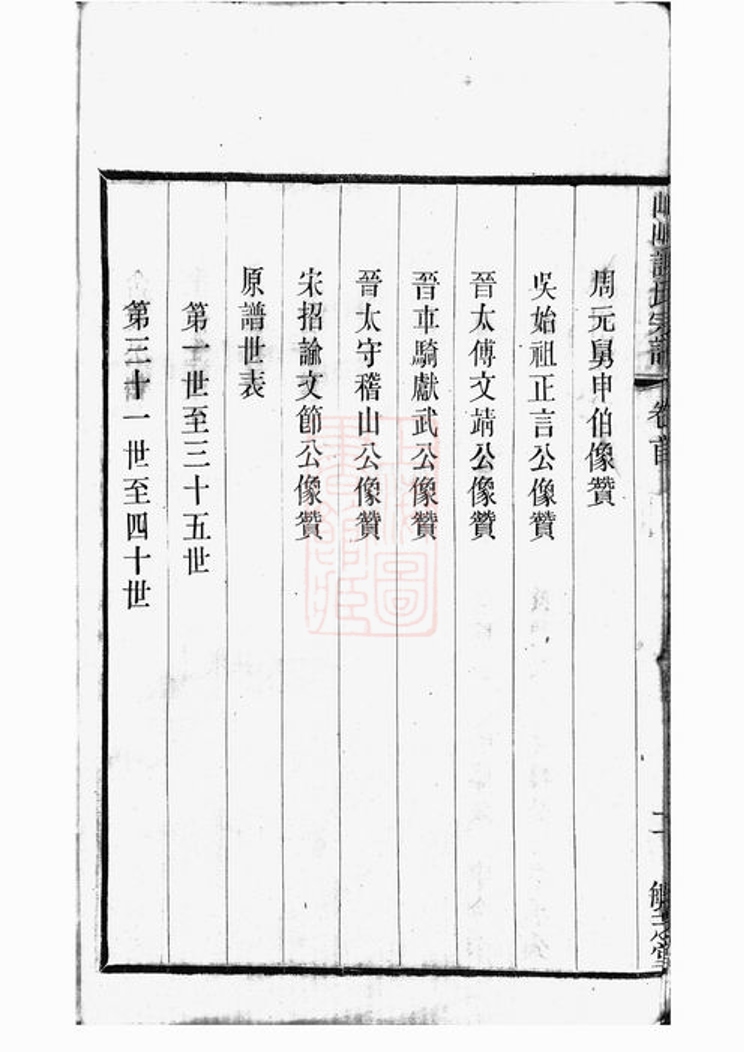 周元舅申伯像贊
吳始祖正言公像贊
晉太傅文靖公像贊
晉車騎獻武公像贊
晉太守稽山公像贊
宋招諭文節公像贊
原譜世表
第一世至三十五世
第三十一世至四十世
謝氏宗譜 卷首
二